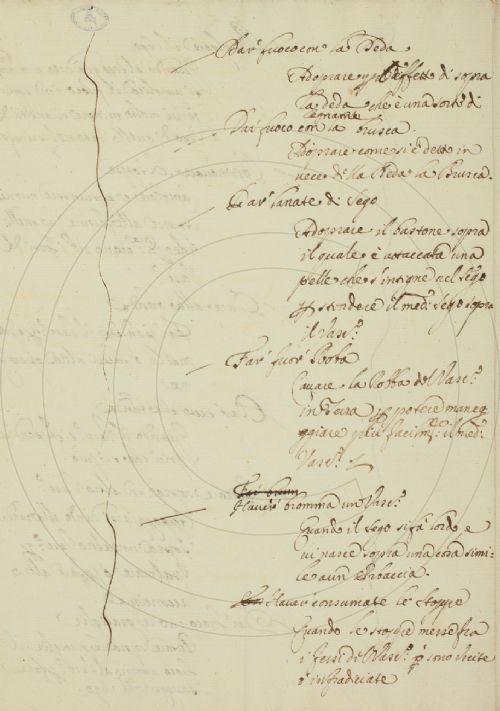 Dar' fuoco con la Deda
Adoprare p l'effetto di sopra
la deda che è una sorte di
legname
Dar' fuoco con la brusca.
Adoprare come si è detto in
vece di la Deda la Brusca.
Dar' lanate di sego
Adoprare il bastone sopra
il quale è attaccata una
pelle che s'intigne nel sego
p stendere il med.º sego sopra
il Vasc.º
Far' fuor' Robba
Cavare la Robba del Vasc.º
in Terra p potere maneg
ggiare più facim.te il med.º
Vasc.º
Far' brum
Haver' bromma un Vasc.º
Quando il sego si fa sordo e
vi nasce sopra una cosa simi-
le a un' erbaccia.
Haver' consumate le stoppe
Quando le stoppe messe fra
i Fersi di Vasc.º sono uscite
ò infradiciate